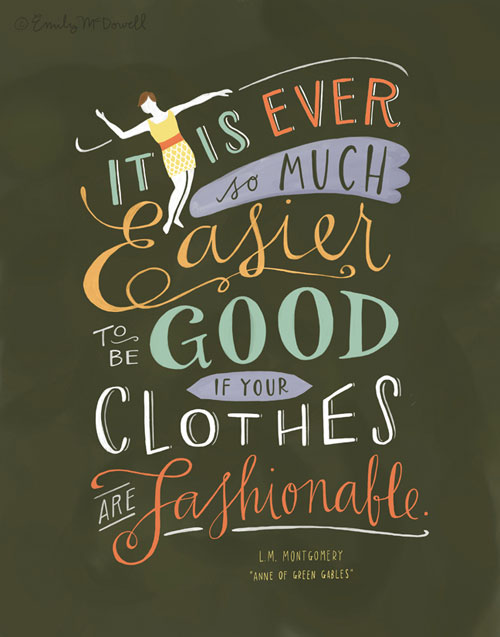 © Emily McDowell
IT IS EVER
so MUCH
Easier
TO BE GOOD
IF YOUR
CLOTHES
ARE Fashionable.
L.M. MONTGOMERY
"ANNE OF GREEN GABLES"